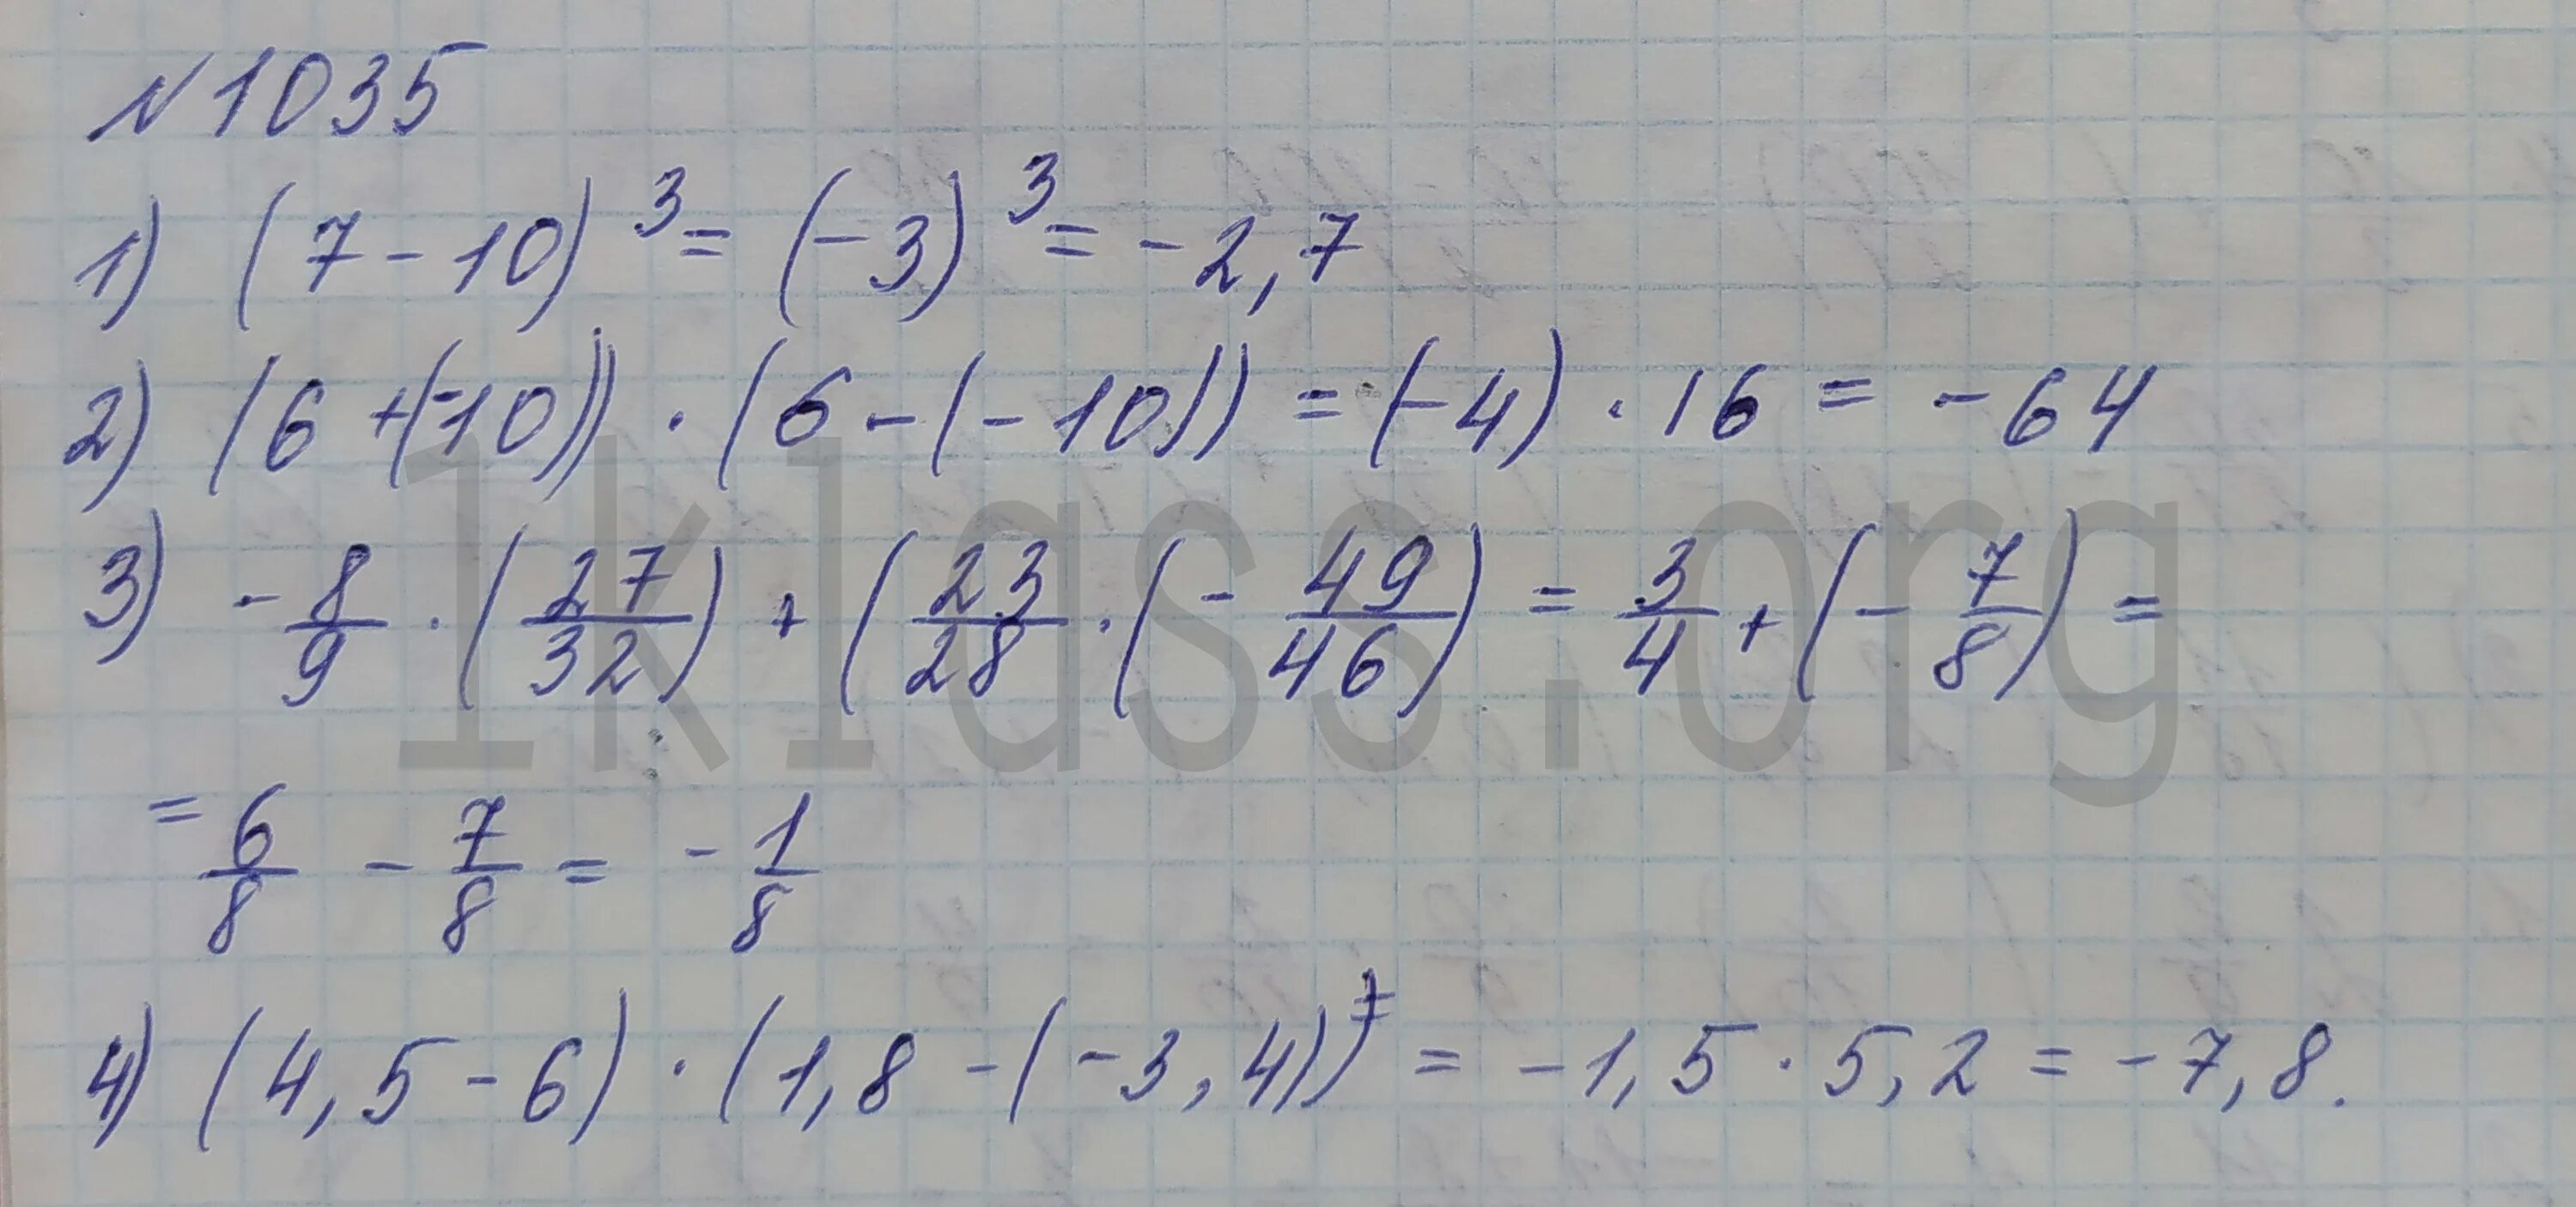 №1035
1) (7-10)³ = (-3)³ = -2,7
2) (6+(-10)) · (6-(-10)) = (-4) · 16 = -64
3) -8/9 · (27/32) + (23/28 · (-49/46) = 3/4 + (-7/8) =
= 6/8 - 7/8 = -1/8
4) (4,5-6) · (1,8-(-3,4)) = -1,5 · 5,2 = -7,8.
1klass.org